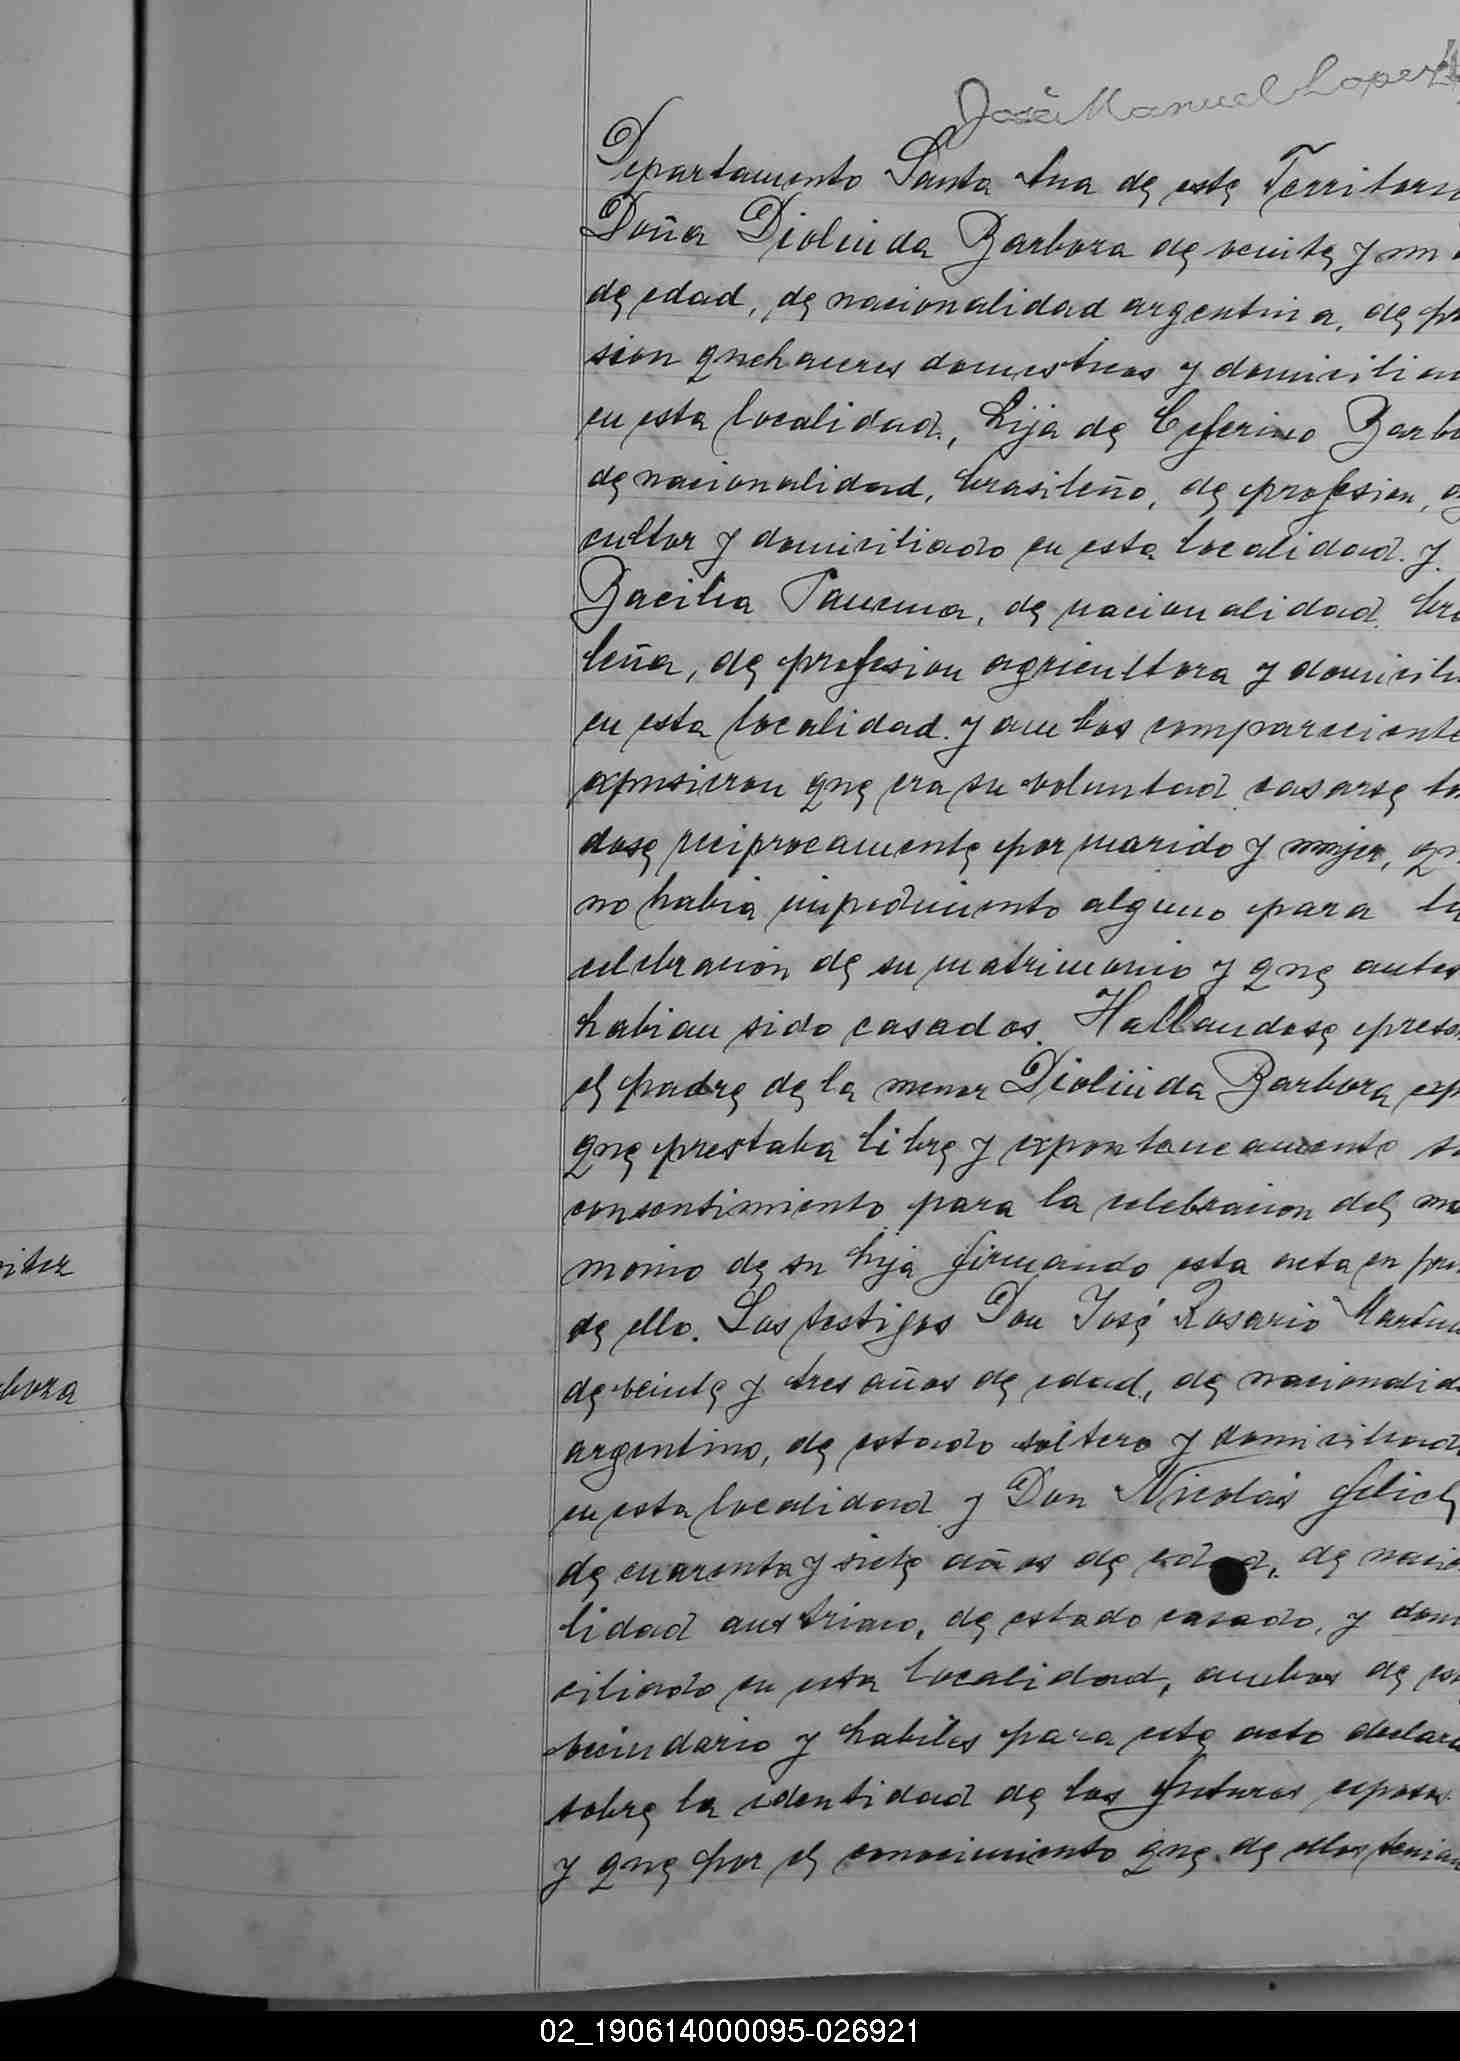 José Manuel Lopez
Departamento Santa Ana de este Territor
Doña Diolinda Barboza de veinte y un
de edad, de nacionalidad argentina, de pr
sion quehaceres domesticos y domicilia
en esta localidad, hija de Ceferino Barbo
de nacionalidad, brasileño, de profesion, a
cultor y domiciliado en esta localidad y
Bacilia, de nacionalidad bra
leña, de profesion agricultora y domicili
en esta localidad y ambos compareciente
expusieron que era su voluntad casarse to
dose reciprocamente por marido y mujer, qu
no habia impedimento alguno para la
celebracion de su matrimonio y que antes
habian sido casados. Hallandose prese
el padre de la menor Diolinda Barboza exp
que prestaba libre y expontaneamente su
consentimiento para la celebracion del ma
monio de su hija firmando esta acta en pru
de ello. Los testigos Don José Rosario Martin
de veinte y tres años de edad, de nacionalid
argentino, de estado soltero y domiciliad
en esta localidad y Don Nicolás
de cuarenta y siete años de edad, de nacio
lidad austriaco, de estado casado, y domi
ciliado en esta localidad, ambos de es
vecindario y habiles para este acto declara
sobre la identidad de los futuros esposos
y que por el conocimiento que de ellos tenian
boza
02_190614000095-026921